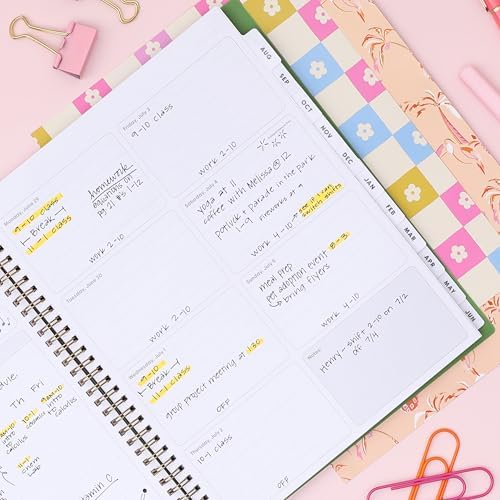 Monday, June 29
9-10 class
⊢Break⊣
11-1 class
homework
equations on
pg 21 #s 1-12
work 2-10
Tuesday, June 30
work 2-10
Wednesday, July 1
9-10
⊢Break⊣
11-1 class
group project meeting at 1:30
OFF
Thursday, July 2
10-1 class
OFF
Friday, July 3
9-10 class
work 2-10
Saturday, July 4
yoga at 11
coffee with Melissa @ 12
potluck + Parade in the park
1-9 fireworks at 9
work 4-10 → see if I can
switch shifts
Sunday, July 5
meal prep
pet adoption event 8-3
↳ bring flyers
work 4-10
Notes
Henry - shift 2-10 on 7/2
OFF 7/4
AUG
SEP
OCT
NOV
DEC
JAN
FEB
MAR
APR
MAY
JUN
Th Fri
intro
to
calculus
11-1
chem
lab
intro
to
calculus
vitamin C